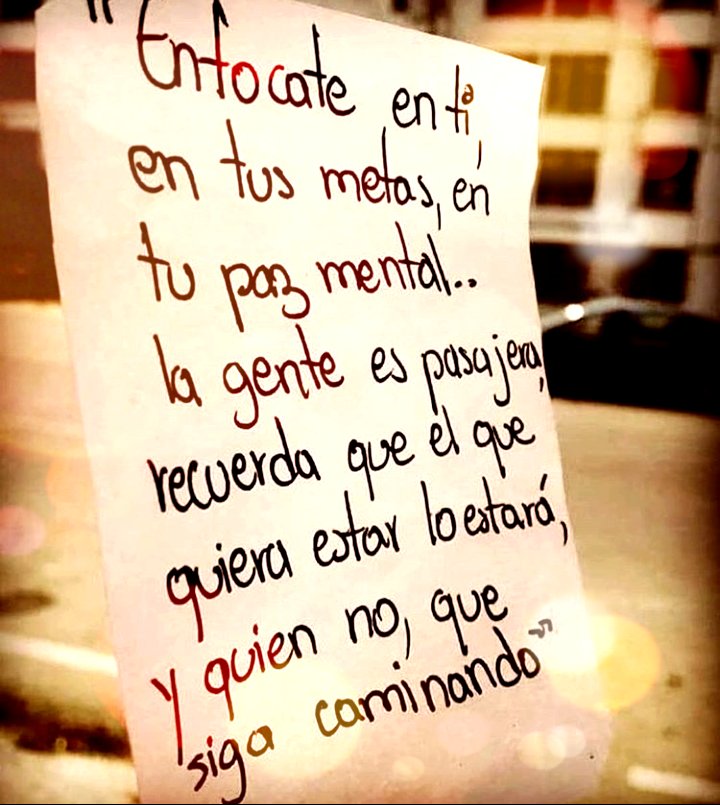 "Enfocate en ti,
en tus metas, en
tu paz mental..
la gente es pasajera,
recuerda que el que
quiera estar lo estará,
y quien no, que
siga caminando"